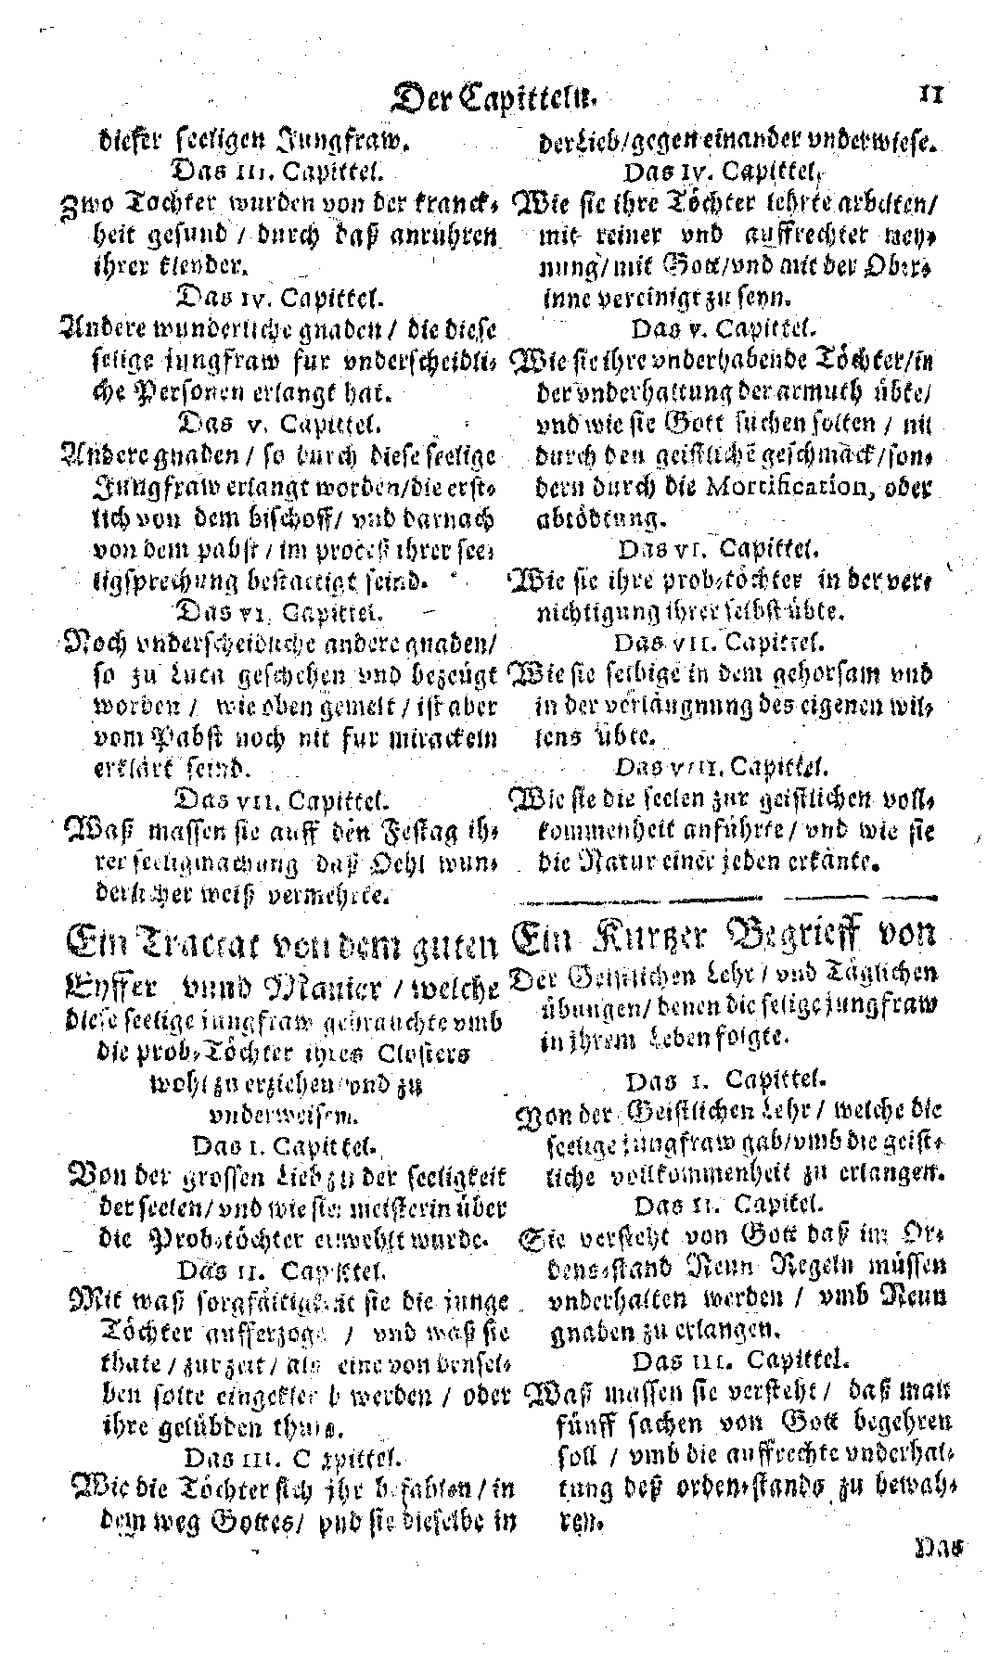 Der Capitteln. 11
dieser seeligen Jungfraw.
Das III. Capittel.
Zwo Tochter wurden von der kranck-
heit gesund / durch daß anruhren
ihrer kleyder.
Das IV. Capittel.
Andere wunderliche gnaden / die diese
selige jungfraw fur vnderscheidli-
che Personen erlangt hat.
Das V. Capittel.
Andere gnaden / so durch diese seelige
Jungfraw erlangt worden/die erst-
lich von dem bischoff/ vnd darnach
von dem pabst / im proceß ihrer see-
ligsprechung bestattigt seind.
Das VI. Capittel.
Noch vnderscheidliche andere gnaden/
so zu Luca geschehen vnd bezeügt
worden / wie oben gemelt / ist aber
vom Pabst noch nit fur mirackeln
erklärt seind.
Das VII. Capittel.
Waß massen sie auff den Festag ih-
rer seeligmachung daß Oehl wun-
derlicher weiß vermehrte.
Ein Tractat von dem guten
Eyffer vnnd Manier / welche
diese seelige jungfraw gebrauchte vmb
die prob-Töchter ihres Closters
wohl zu erziehen/vnd zu
vnderweisem.
Das I. Capittel.
Von der grossen Lieb zu der seeligkeit
der seelen/ vnd wie sie meisterin über
die Prob-töchter erwehlt wurde.
Das II. Capittel.
Mit waß sorgfältigkeit sie die junge
Töchter aufferzoge / vnd waß sie
thäte / zur zeit / als eine von densel-
ben solte eingekleid werden / oder
ihre gelübden thuis.
Das III. Capittel.
Wie die Töchter sich jhr befahlen / in
dem weg Gottes/ vnd sie dieselbe in
der Lieb/gegen einander vnderwiese.
Das IV. Capittel.
Wie sie ihre Töchter lehrte arbeiten/
mit reiner vnd auffrechter mey-
nung/ mit Gott/vnd mit der Ober-
inne vereinigt zu seyn.
Das V. Capittel.
Wie sie ihre vnderhabende Töchter/in
der vnderhaltung der armuth übte/
vnd wie sie Gott suchen solten / nit
durch den geistlichē geschmack/son-
dern durch die Mortification, oder
abtödtung.
Das VI. Capittel.
Wie sie ihre prob-töchter in der ver-
nichtigung ihrer selbst übte.
Das VII. Capittel.
Wie sie selbige in dem gehorsam vnd
in der verläugnung des eigenen wil-
lens übte.
Das VIII. Capittel.
Wie sie die seelen zur geistlichen voll-
kommenheit anführte / vnd wie sie
die Natur einer jeden erkänte.
Ein Kurtzer Begrieff von
Der Geistlichen Lehr / vnd Täglichen
übungen/ denen die selige jungfraw
in jhrem Leben folgte.
Das I. Capittel.
Von der Geistlichen Lehr / welche die
seelige jungfraw gab/vmb die geist-
liche vollkommenheit zu erlangen.
Das II. Capitel.
Sie versteht von Gott daß im Or-
dens-stand Neun Regeln müssen
vnderhalten werden / vmb Neun
gnaden zu erlangen.
Das III. Capittel.
Waß massen sie versteht / daß man
fünff sachen von Gott begehren
soll / vmb die auffrechte vnderhal-
tung deß orden-stands zu bewah-
ren.
Das